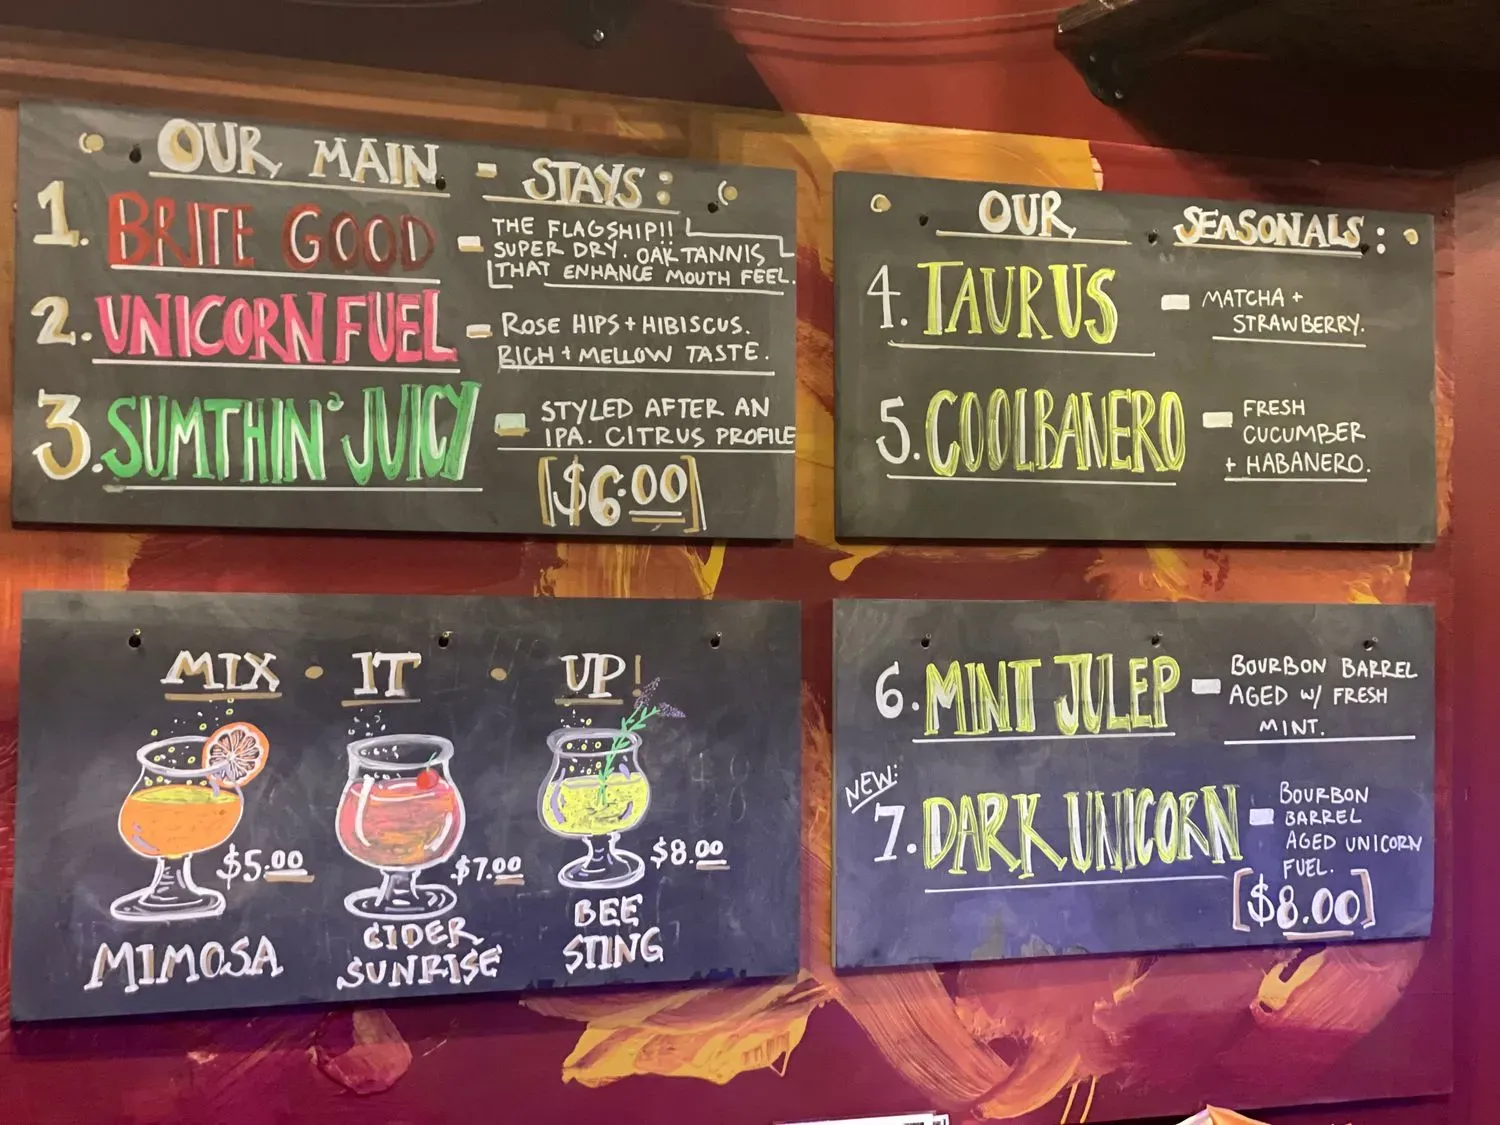 OUR MAIN - STAYS:
1. BRITE GOOD - THE FLAGSHIP!!
SUPER DRY. OAK TANNIS
THAT ENHANCE MOUTH FEEL.
2. UNICORN FUEL - ROSE HIPS + HIBISCUS.
RICH + MELLOW TASTE.
3. SUMTHIN' JUICY - STYLED AFTER AN
IPA. CITRUS PROFILE
[$6.00]
OUR SEASONALS:
4. TAURUS - MATCHA +
STRAWBERRY.
5. COOLBANERO - FRESH
CUCUMBER
+ HABANERO.
MIX · IT · UP!
$5.00
MIMOSA
$7.00
CIDER
SUNRISE
$8.00
BEE
STING
6. MINT JULEP - BOURBON BARREL
AGED W/ FRESH
MINT.
NEW:
7. DARK UNICORN - BOURBON
BARREL
AGED UNICORN
FUEL.
[$8.00]